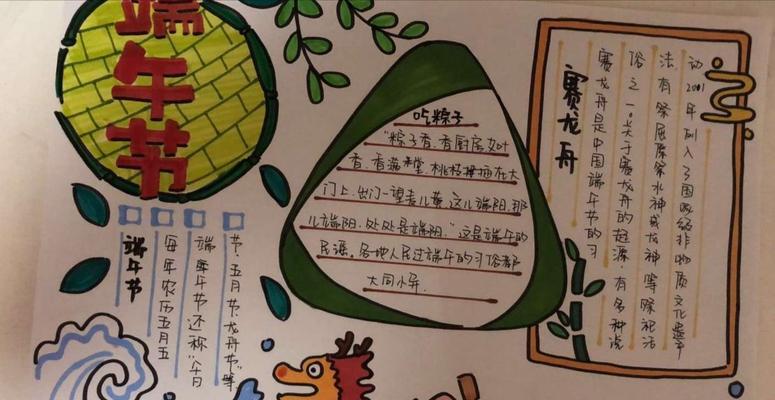 端午节
端午节
每年农历五月五
端午节还称“午日
节、五月节、龙舟节”等
吃粽子
“粽子香,香厨房艾叶
香,香满堂,桃枝插在大
门上,出门一望麦儿黄,这儿端阳,那
儿端阳,处处是端阳.”这是端午的
民谣,各地人民过端午的习俗都
大同小异.
赛龙舟
赛龙舟是中国端午节的习
俗之一。关于赛龙舟的起源,有多种说
法,有祭屈原祭水神或龙神等祭祀活
动2001年列入了国级非物质文化遗产